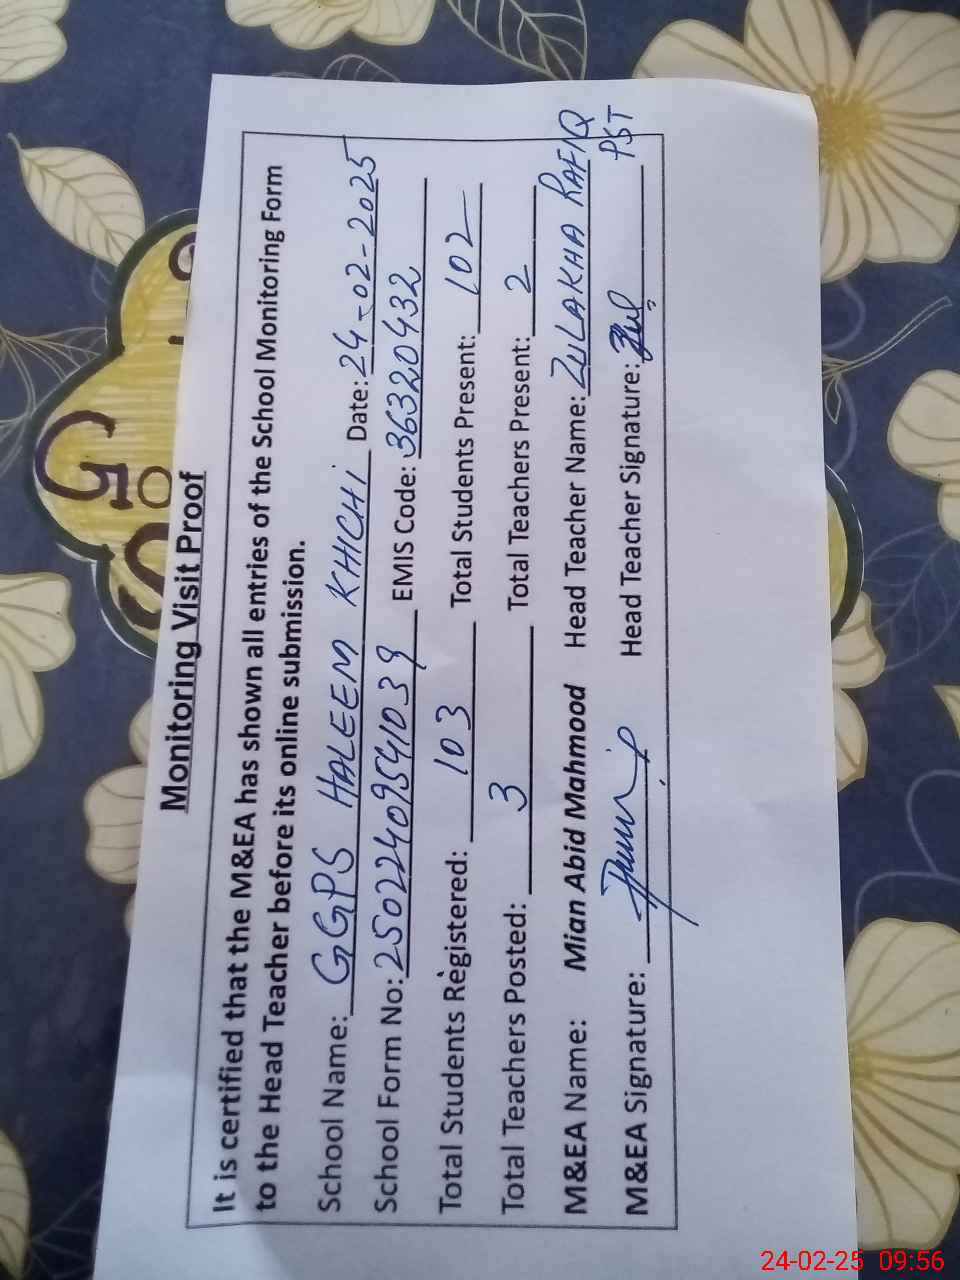 Monitoring Visit Proof
It is certified that the M&EA has shown all entries of the School Monitoring Form
to the Head Teacher before its online submission.
School Name: GGPS HALEEM KHICHI Date: 24-02-2025
School Form No: 250224095541039 EMIS Code: 36320432
Total Students Registered: 103 Total Students Present: 102
Total Teachers Posted: 3 Total Teachers Present: 2
M&EA Name: Mian Abid Mahmood Head Teacher Name: ZULAKHA RAFIQ
M&EA Signature: Head Teacher Signature: PST
24-02-25 09:56